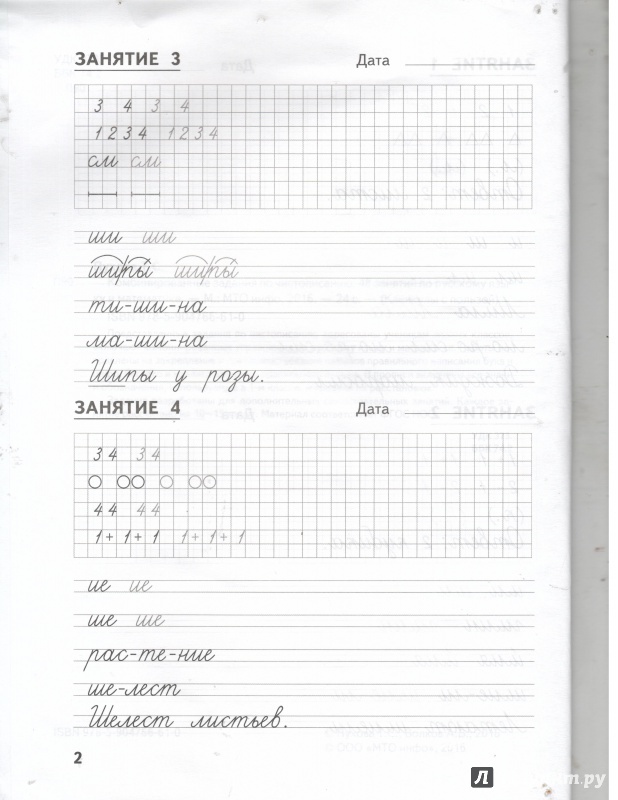 ЗАНЯТИЕ 3 Дата
3 4 3 4
1 2 3 4 1 2 3 4
см см
ши ши
шипы шипы
ти-ши-на
ма-ши-на
Шипы у розы.
ЗАНЯТИЕ 4 Дата
3 4 3 4
4 4 4 4
1 + 1 + 1 1 + 1 + 1
ие ие
ше ше
рас-те-ние
ше-лест
Шелест листьев.
2
Л ЛАБИРИНТ.РУ